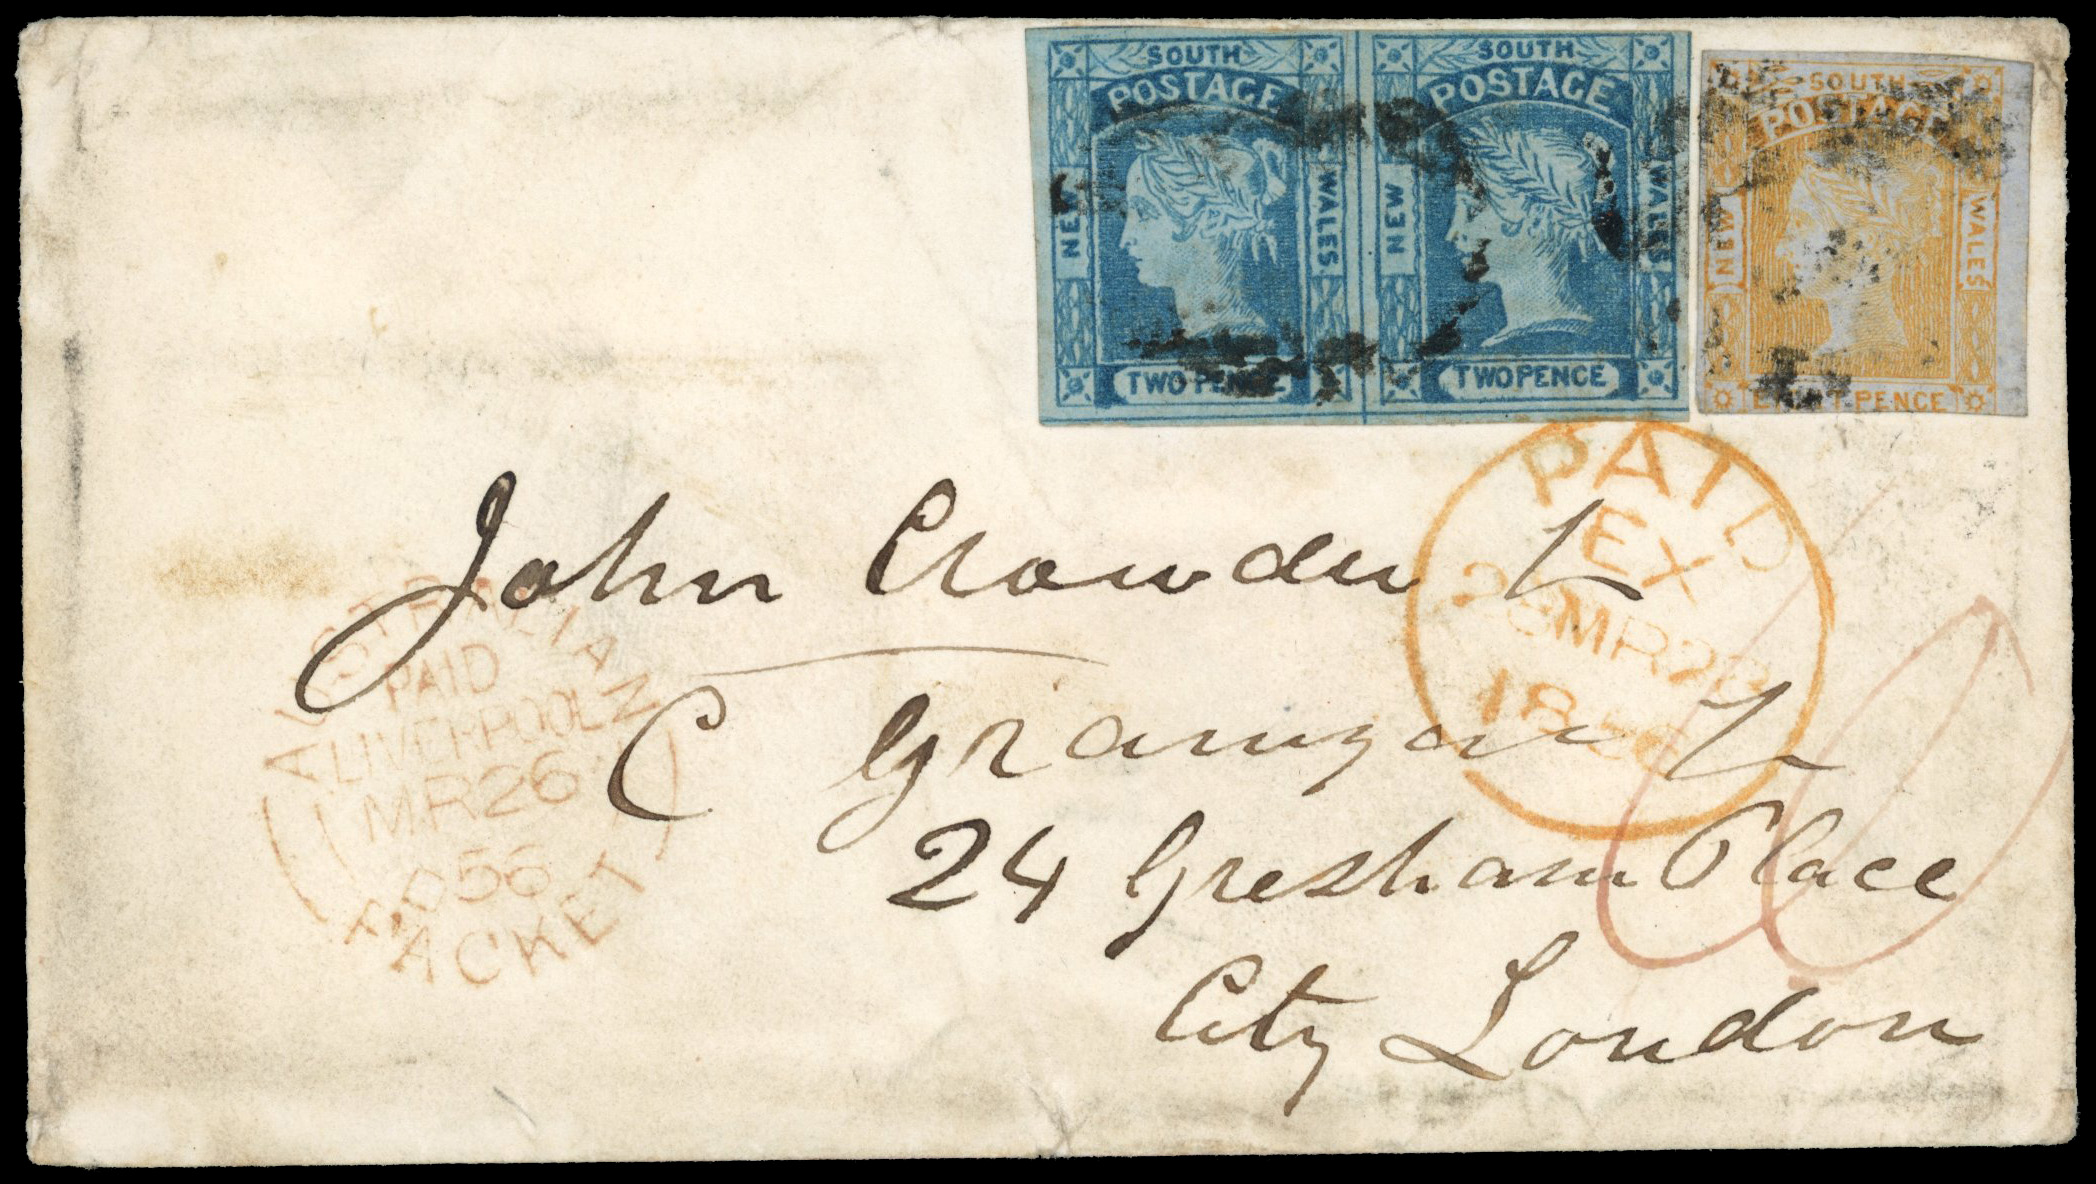 SOUTH
POSTAGE
NEW
WALES
TWO PENCE
SOUTH
POSTAGE
NEW
WALES
TWO PENCE
SOUTH
POSTAGE
NEW
WALES
EIGHT PENCE
PAID
EX
28 MR 28
1856
John Crowder
24 Gresham Place
City London
AUSTRALIAN
PAID
LIVERPOOL
MR 26
56
PACKET